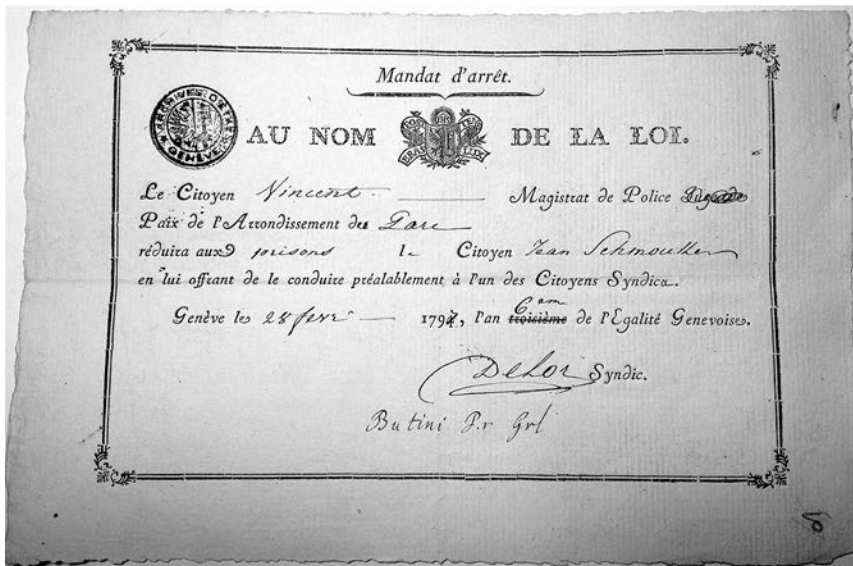 Mandat d'arrêt.
ARCHIVES D'ETAT
GENÈVE
AU NOM DE LA LOI.
POST TENEBRAS LUX
Le Citoyen Vincent Magistrat de Police
Paix de l'Arrondissement du Parc
réduira aux prisons le Citoyen Jean Schmoutker
en lui offrant de le conduire préalablement à l'un des Citoyens Syndics.
Genève le 28 fevr 1797, l'an 6am troisième de l'Egalité Genevoise.
Delor Syndic.
Butini P.r Grl